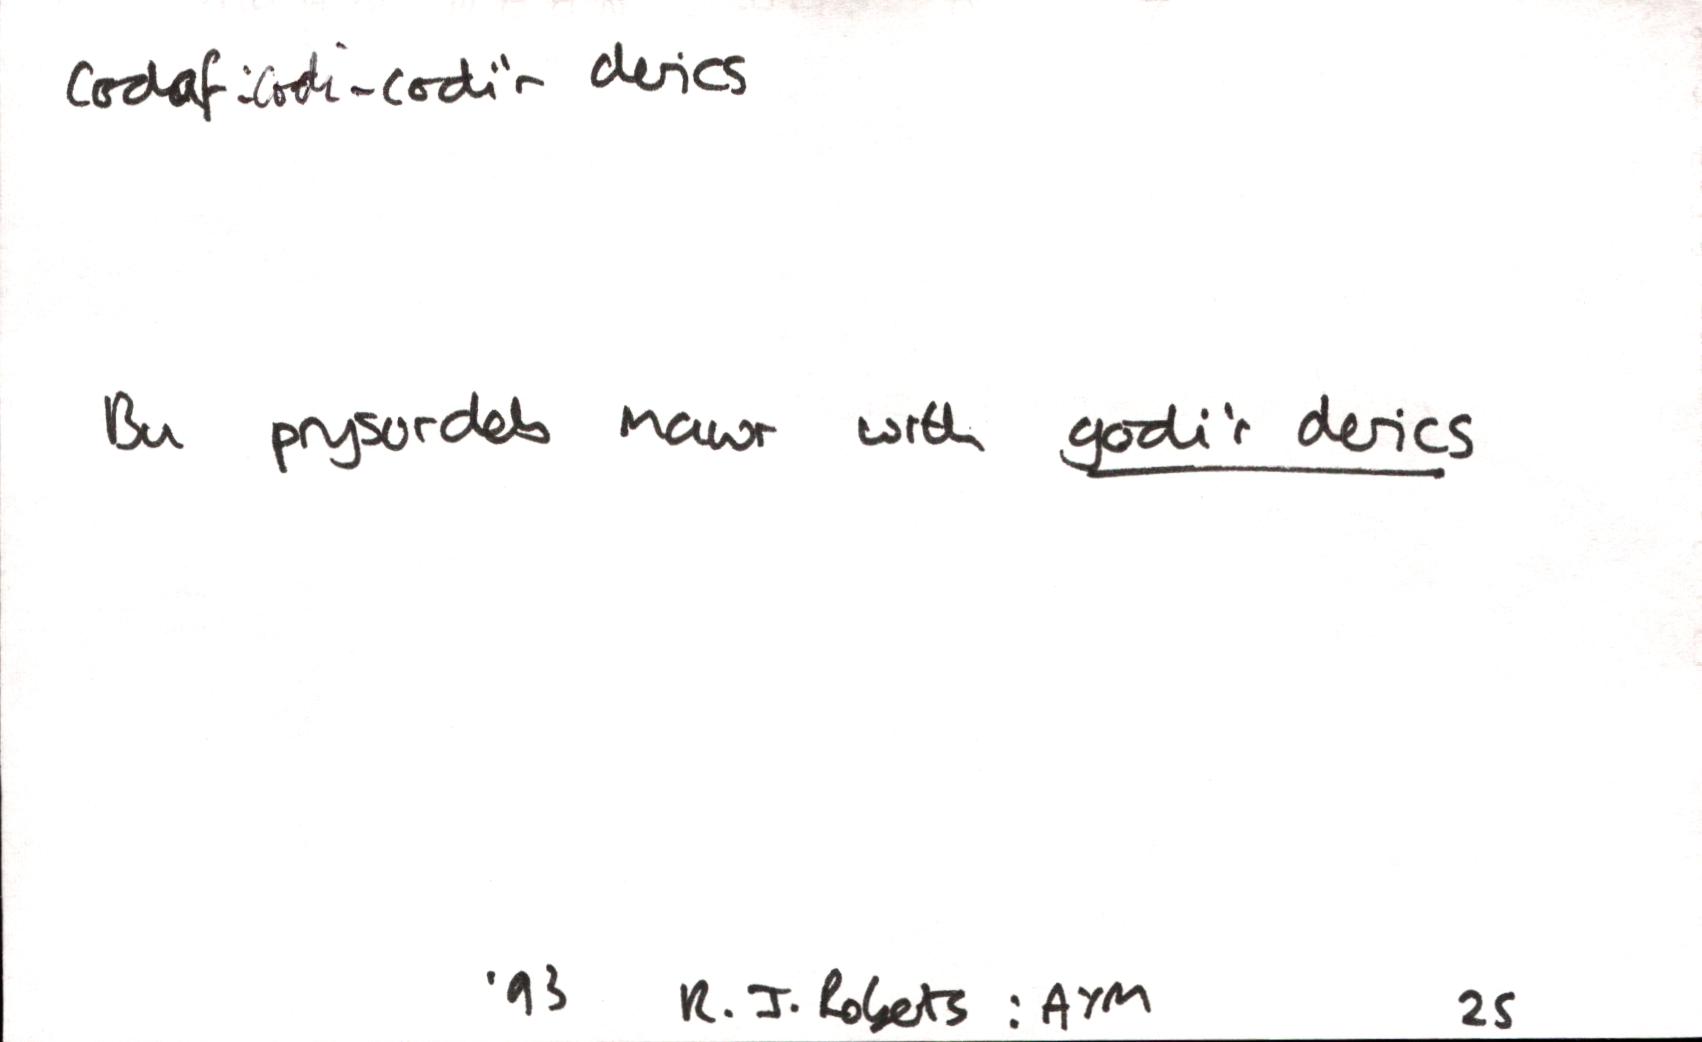 codaf: codi - codi'r derics
Bu prysurdeb mawr wrth godi'r derics
'93 R. J. Roberts : AYM 25